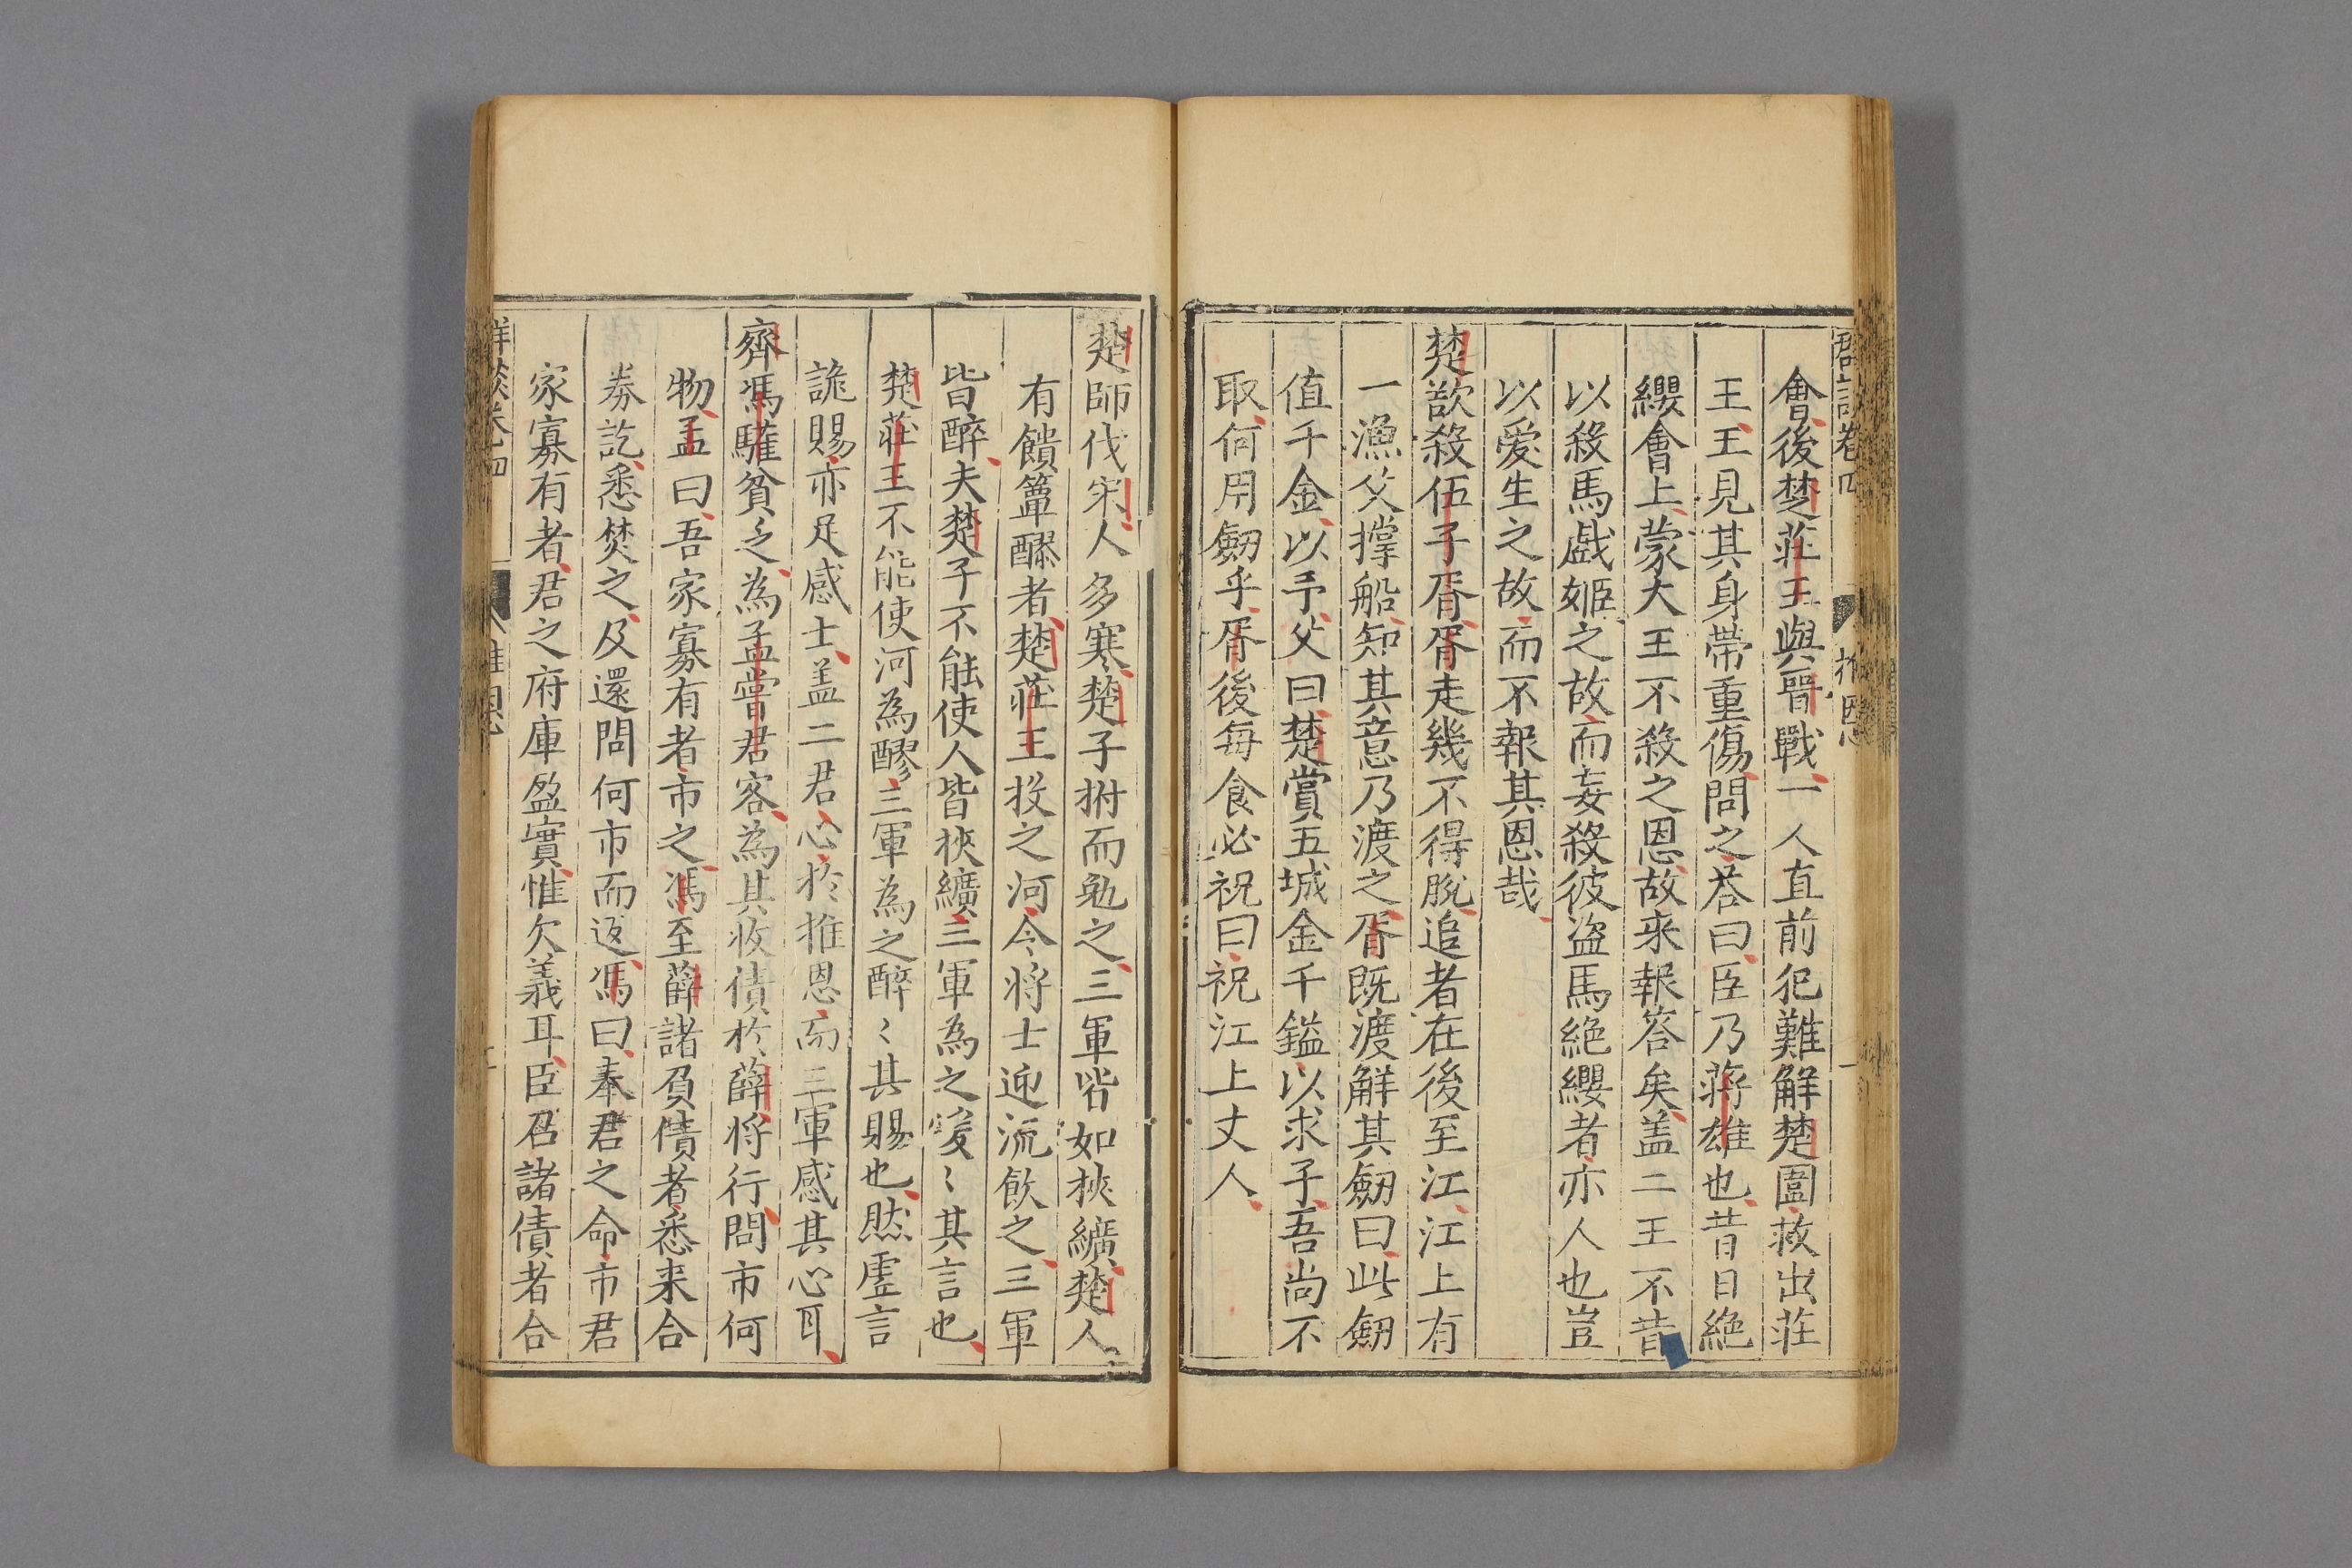 會後楚莊王與晉戰一人直前犯難解楚圍救出莊
王王見其身帶重傷問之荅曰臣乃蔣雄也昔日絕
纓會上蒙大王不殺之恩故来報答矣盖二王不昔
以殺馬戲姬之故而妄殺彼盜馬絕纓者亦人也豈
以愛生之故而不報其恩哉
楚欲殺伍子胥胥走幾不得脫追者在後至江江上有
一漁父撑船知其意乃渡之胥既渡解其劒曰此劒
值千金以予父父曰楚賞五城金千鎰以求子吾尚不
取何用劒乎胥後每食必祝曰祝江上丈人
楚師伐宋人多寒楚子拊而勉之三軍皆如挾纊楚人
有饋簞醪者楚莊王投之河令将士迎流飲之三軍
皆醉夫楚子不能使人皆挾纊三軍為之煖〻其言也
楚莊王不能使河為醪三軍為之醉〻其賜也然虛言
詭賜亦足感士盖二君心於推恩而三軍感其心耳
齊馮驩貧乏為孟嘗君客為其收債於薛将行問市何
物孟曰吾家寡有者市之馮至薛諸負債者悉来合
券訖悉焚之及還問何市而返馮曰奉君之命市君
家寡有者君之府庫盈實惟欠義耳臣召諸債者合